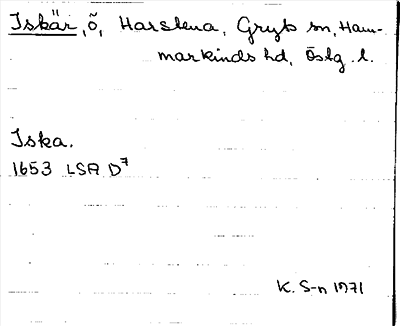 Iskär, ö, Harstena, Gryts sn, Ham-
markinds hd, Östg. l.
Iska.
1653 LSA D7
K. S-n 1971